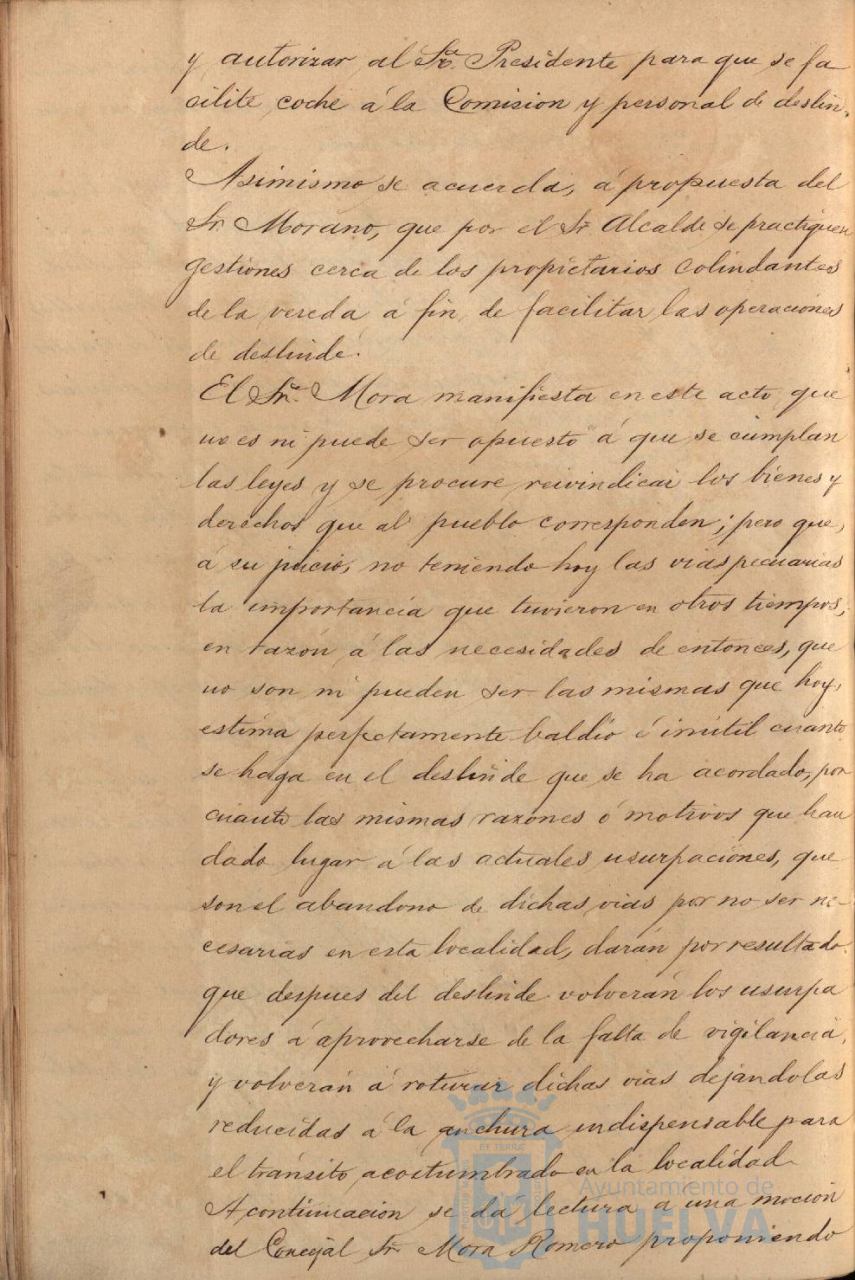 y autorizar al Sr. Presidente para que se fa
cilite coche á la Comision y personal de deslin-
de.
Asimismo se acuerda, á propuesta del
Sr. Morano, que por el Sr Alcalde se practiquen
gestiones cerca de los propietarios colindantes
de la vereda á fin de facilitar las operaciones
de deslinde.
El Sr. Mora manifiesta en este acto que
no es ni puede ser opuesto á que se cumplan
las leyes y se procure reivindicar los bienes y
derechos que al pueblo corresponden; pero que,
á su juicio, no teniendo hoy las vias pecuarias
la importancia que tuvieron en otros tiempos,
en razón á las necesidades de entonces, que
no son ni pueden ser las mismas que hoy,
estima perfectamente baldío é inútil cuanto
se haga en el deslinde que se ha acordado, por
cuanto las mismas razones ó motivos que han
dado lugar á las actuales usurpaciones, que
son el abandono de dichas vias por no ser ne-
cesarias en esta localidad, darán por resultado
que despues del deslinde volverán los usurpa
dores á aprovecharse de la falta de vigilancia,
y volverán á roturar dichas vias dejándolas
reducidas á la anchura indispensable para
el tránsito acostumbrado en la localidad
A continuacion se dá lectura a una moción
del Concejal Sr. Mora Romero proponiendo
Ayuntamiento de
HUELVA